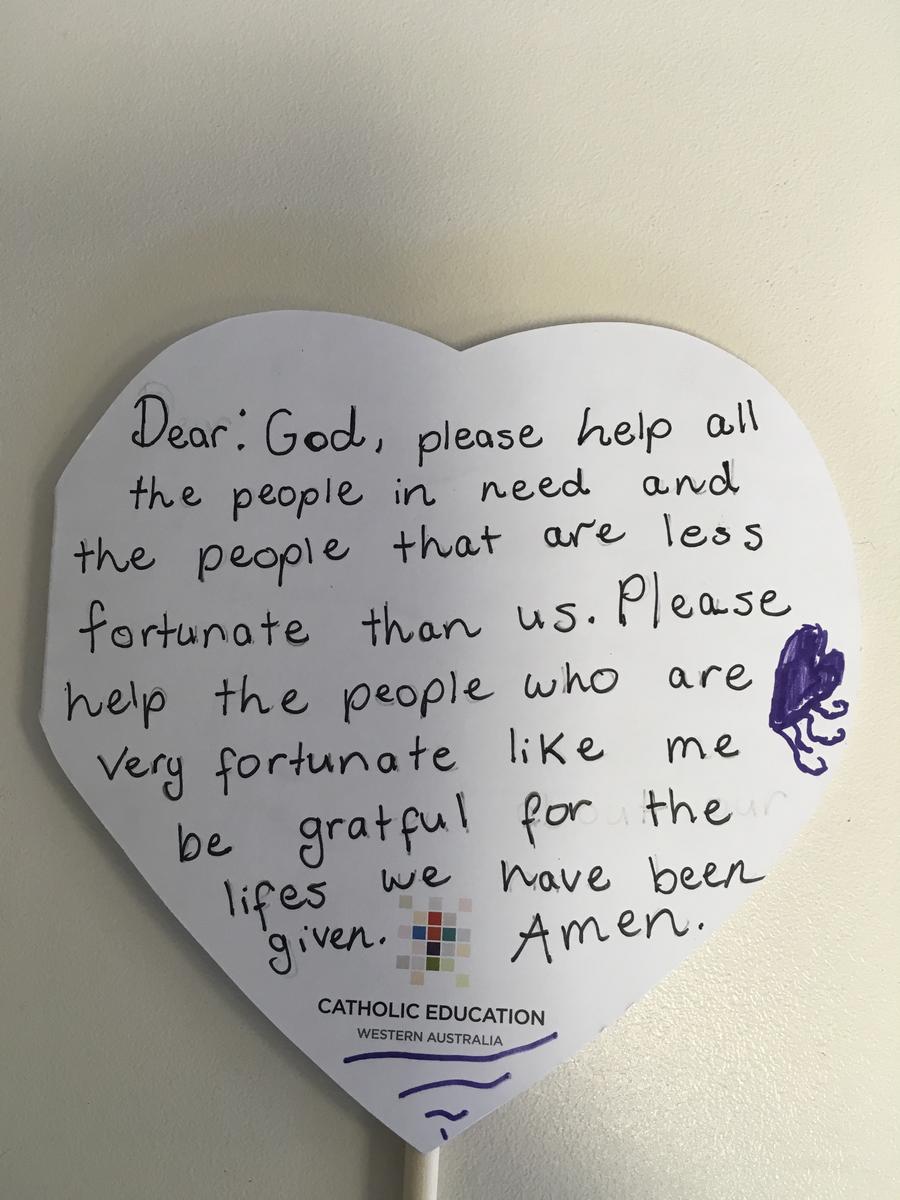 Dear: God, please help all
the people in need and
the people that are less
fortunate than us. Please
help the people who are
very fortunate like me
be gratful for the
lifes we have been
given. Amen.
CATHOLIC EDUCATION
WESTERN AUSTRALIA